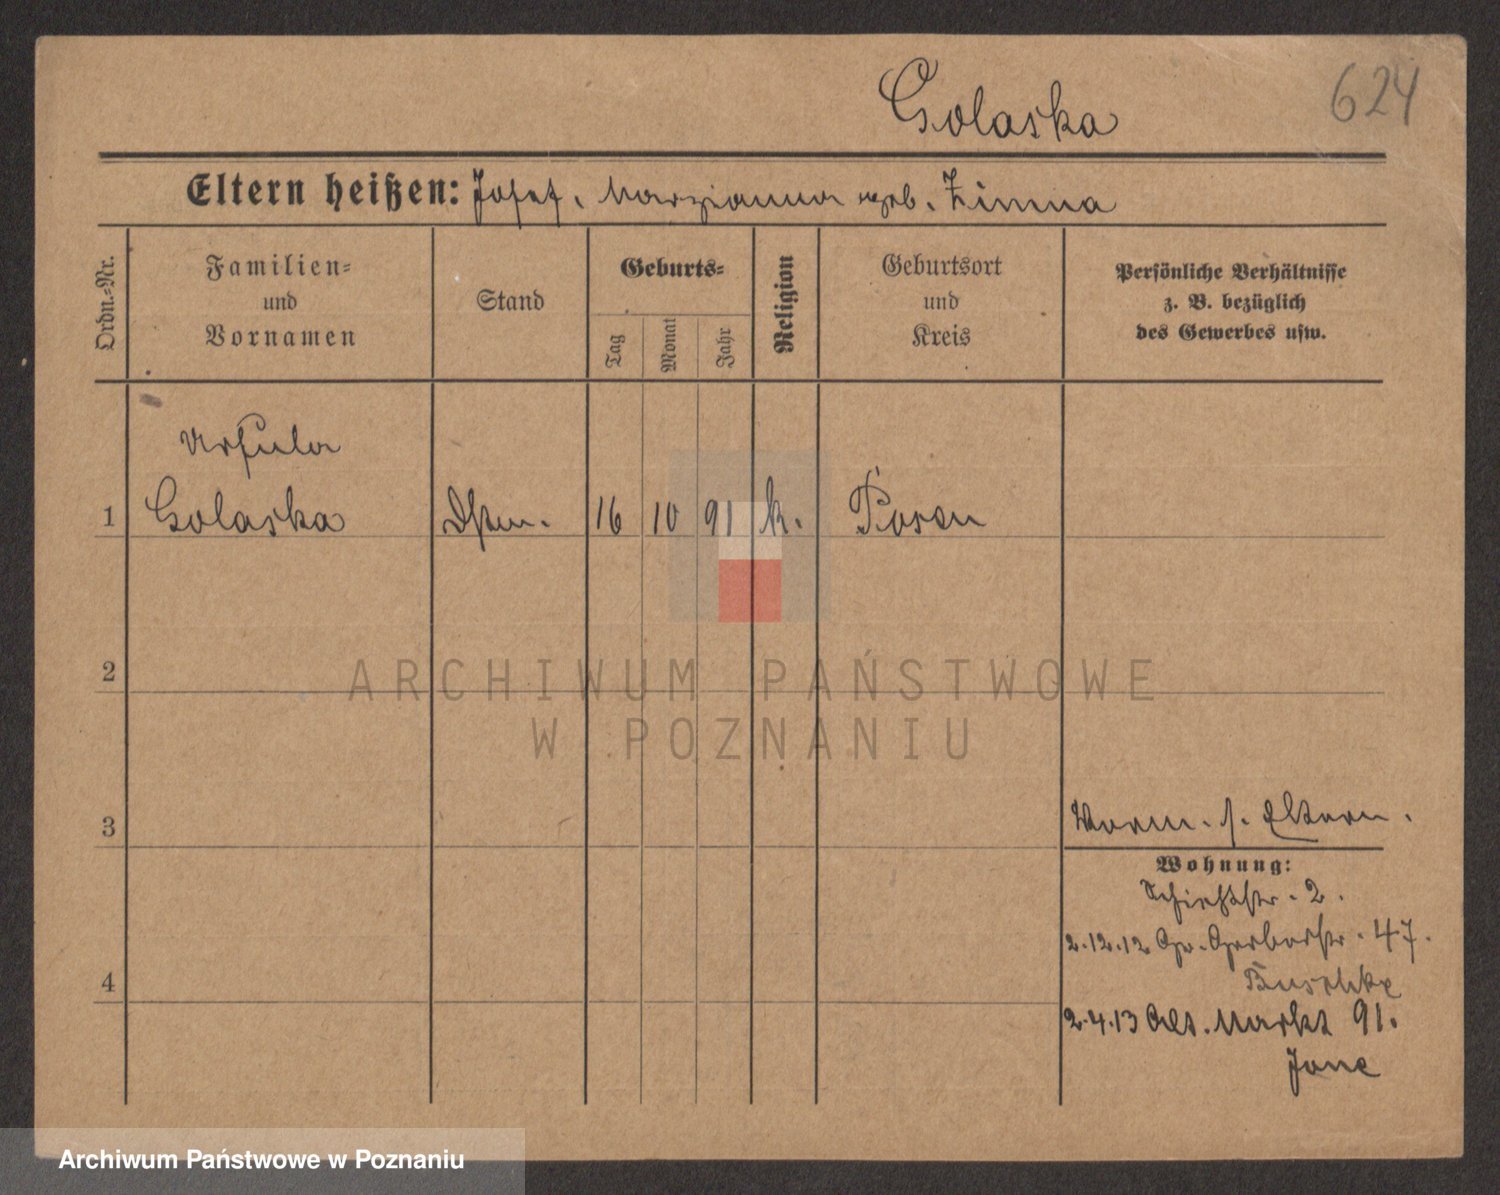 Golaska
624
Eltern heißen: Josef, Marzianna geb. Zimna
Ordn.-Nr.
Familien-
und
Vornamen
Stand
Geburts-
Tag
Monat
Jahr
Religion
Geburtsort
und
Kreis
Persönliche Verhältnisse
z. B. bezüglich
des Gewerbes usw.
Ursula
1 Golaska Dstm. 16 10 91 k. Posen
2
ARCHIWUM PAŃSTWOWE
W POZNANIU
3
Vorm. s. Eltern.
Wohnung:
Schießstr. 2.
2.12.12 Gr. Gerberstr. 47.
4
2.4.13 Alt. Markt 91.
Archiwum Państwowe w Poznaniu